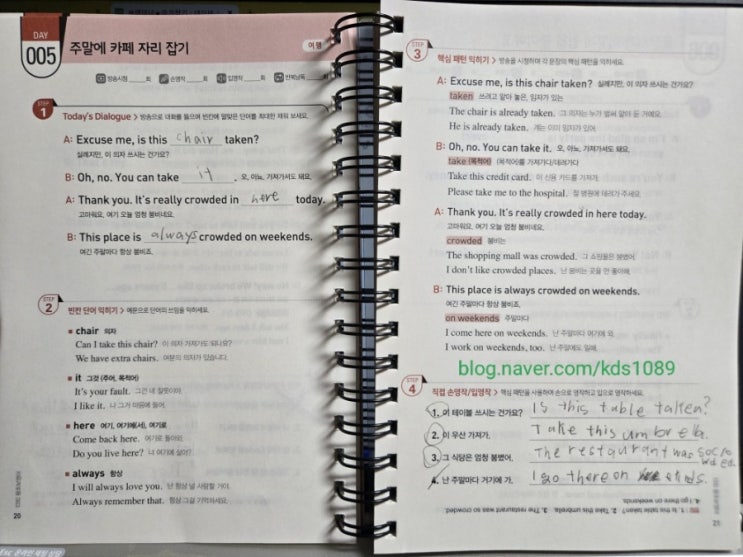 DAY
005
주말에 카페 자리 잡기
여행
방송시청 회
손영작 회
입영작 회
반복낭독 회
STEP
1
Today's Dialogue > 방송으로 대화를 들으며 빈칸에 알맞은 단어를 최대한 채워 보세요.
A: Excuse me, is this chair taken?
실례지만, 이 의자 쓰시는 건가요?
B: Oh, no. You can take it. 오, 아뇨. 가져가셔도 돼요.
A: Thank you. It's really crowded in here today.
고마워요. 여기 오늘 엄청 붐비네요.
B: This place is always crowded on weekends.
여긴 주말마다 항상 붐비죠.
STEP
2
빈칸 단어 익히기 > 예문으로 단어의 쓰임을 익히세요.
chair 의자
Can I take this chair? 이 의자 가져가도 되나요?
We have extra chairs. 여분의 의자가 있습니다.
it 그것 (주어, 목적어)
It's your fault. 그건 네 잘못이야.
I like it. 나 그거 마음에 들어.
here 여기, 여기에(서), 여기로
Come back here. 여기로 돌아와.
Do you live here? 너 여기에 살아?
always 항상
I will always love you. 난 항상 널 사랑할 거야.
Always remember that. 항상 그걸 기억하세요.
20
STEP
3
핵심 패턴 익히기 > 방송을 시청하며 각 문장의 핵심 패턴을 익히세요.
A: Excuse me, is this chair taken? 실례지만, 이 의자 쓰시는 건가요?
taken 쓰려고 맡아 놓은, 임자가 있는
The chair is already taken. 그 의자는 누가 벌써 맡아 둔 거예요.
He is already taken. 걔는 이미 임자가 있어.
B: Oh, no. You can take it. 오, 아뇨. 가져가셔도 돼요.
take (목적어) (목적어)를 가져가다/데려가다
Take this credit card. 이 신용 카드를 가져가.
Please take me to the hospital. 절 병원에 데려가 주세요.
A: Thank you. It's really crowded in here today.
고마워요. 여기 오늘 엄청 붐비네요.
crowded 붐비는
The shopping mall was crowded. 그 쇼핑몰은 붐볐어.
I don't like crowded places. 난 붐비는 곳을 안 좋아해.
B: This place is always crowded on weekends.
여긴 주말마다 항상 붐비죠.
on weekends 주말마다
I come here on weekends. 난 주말마다 여기에 와.
I work on weekends, too. 난 주말에도 일해.
blog.naver.com/kds1089
STEP
4
직접 손영작/입영작 > 핵심 패턴을 사용하여 손으로 영작하고 입으로 영작하세요.
1. 이 테이블 쓰시는 건가요? Is this table taken?
2. 이 우산 가져가. Take this umbrella.
3. 그 식당은 엄청 붐볐어. The restaurant was so cro
wded.
4. 난 주말마다 거기에 가. I go there on
1. Is this table taken? 2. Take this umbrella. 3. The restaurant was so crowded.
4. I go there on weekends.
21